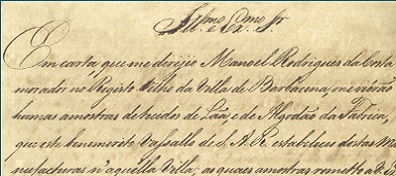 Ill.mo e Ex.mo Sr.
Em carta, que me dirijio Manoel Rodrigues da Costa
morador no Registo Velho da Villa de Barbacena, me vierão
humas amostras de tecidos de Laã, e de Algodão da Fabrica,
que este benemerito Vassallo de S. A. R. estableceo destas Ma
nufacturas n'aquella Villa; as quaes amostras remetto a V. Ex